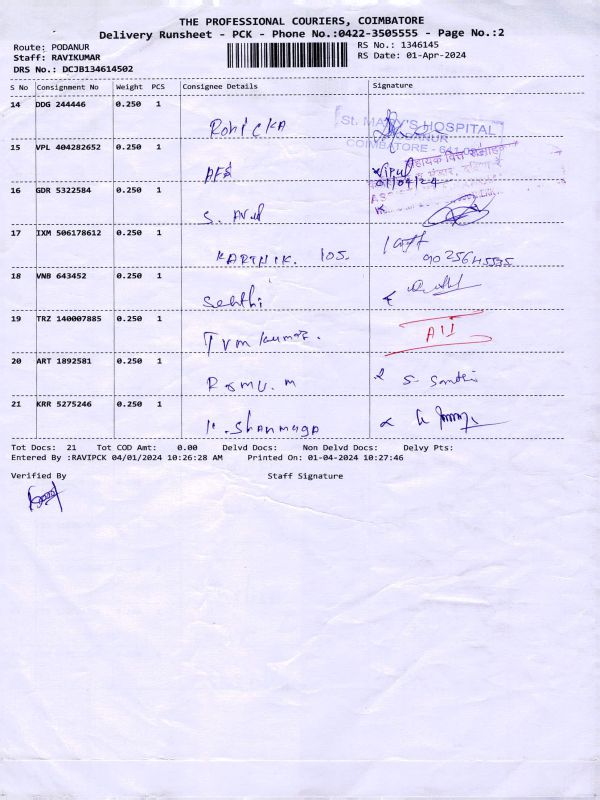 THE PROFESSIONAL COURIERS, COIMBATORE
Delivery Runsheet - PCK - Phone No.:0422-3505555 - Page No.:2
Route: PODANUR RS No.: 1346145
Staff: RAVIKUMAR RS Date: 01-Apr-2024
DRS No.: DCJB134614502
S No Consignment No Weight PCS Consignee Details Signature
14 DDG 244446 0.250 1
ROHICKA St. MARY'S HOSPITAL
PODANUR
15 VPL 404282652 0.250 1 COIMBATORE - 641
AFS Vipul
01/04/24
16 GDR 5322584 0.250 1
S. Arul
17 IXM 506178612 0.250 1
KARTHIK. 105.
18 VNB 643452 0.250 1
Sakthi
19 TRZ 140007885 0.250 1
Tvm kumar. A11
20 ART 1892581 0.250 1
Ramu. m S. Santhi
21 KRR 5275246 0.250 1
Shanmuga
Tot Docs: 21 Tot COD Amt: 0.00 Delvd Docs: Non Delvd Docs: Delvy Pts:
Entered By :RAVIPCK 04/01/2024 10:26:28 AM Printed On: 01-04-2024 10:27:46
Verified By Staff Signature